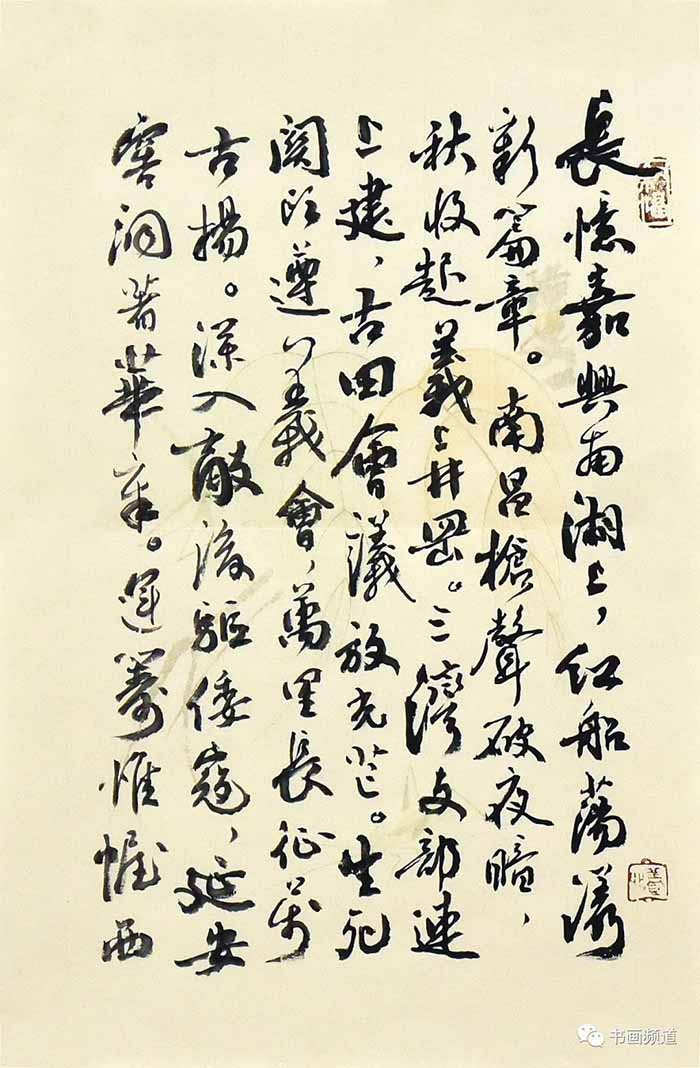 長憶嘉興南湖上，紅船蕩漾
新篇章。南昌槍聲破夜暗，
秋收起義上井岡。三灣支部連
上建，古田會議放光芒。生死
關頭遵義會，萬里長征萬
古揚。深入敵後驅倭寇，延安
窑洞著華章。運籌帷幄西
书画频道